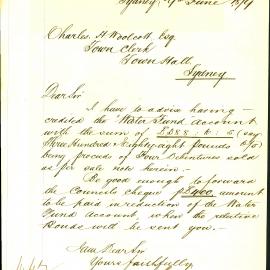 Sydney, 9th June 18
Charles H Woolcott Esq
Town Clerk
Town Hall
Sydney
Dear Sir
I have to advise having
credited the Water Fund Account
with the sum of £388 (say
Three Hundred & Eighty eight pounds
being proceeds of Four Debentures sold
as per sale note herein
Be good enough to forward
the Councils cheque for £400 amount
to be paid in reduction of the Water
Fund Account, when the relative
Bonds will be sent you.
I am Dear Sir
Yours faithfully